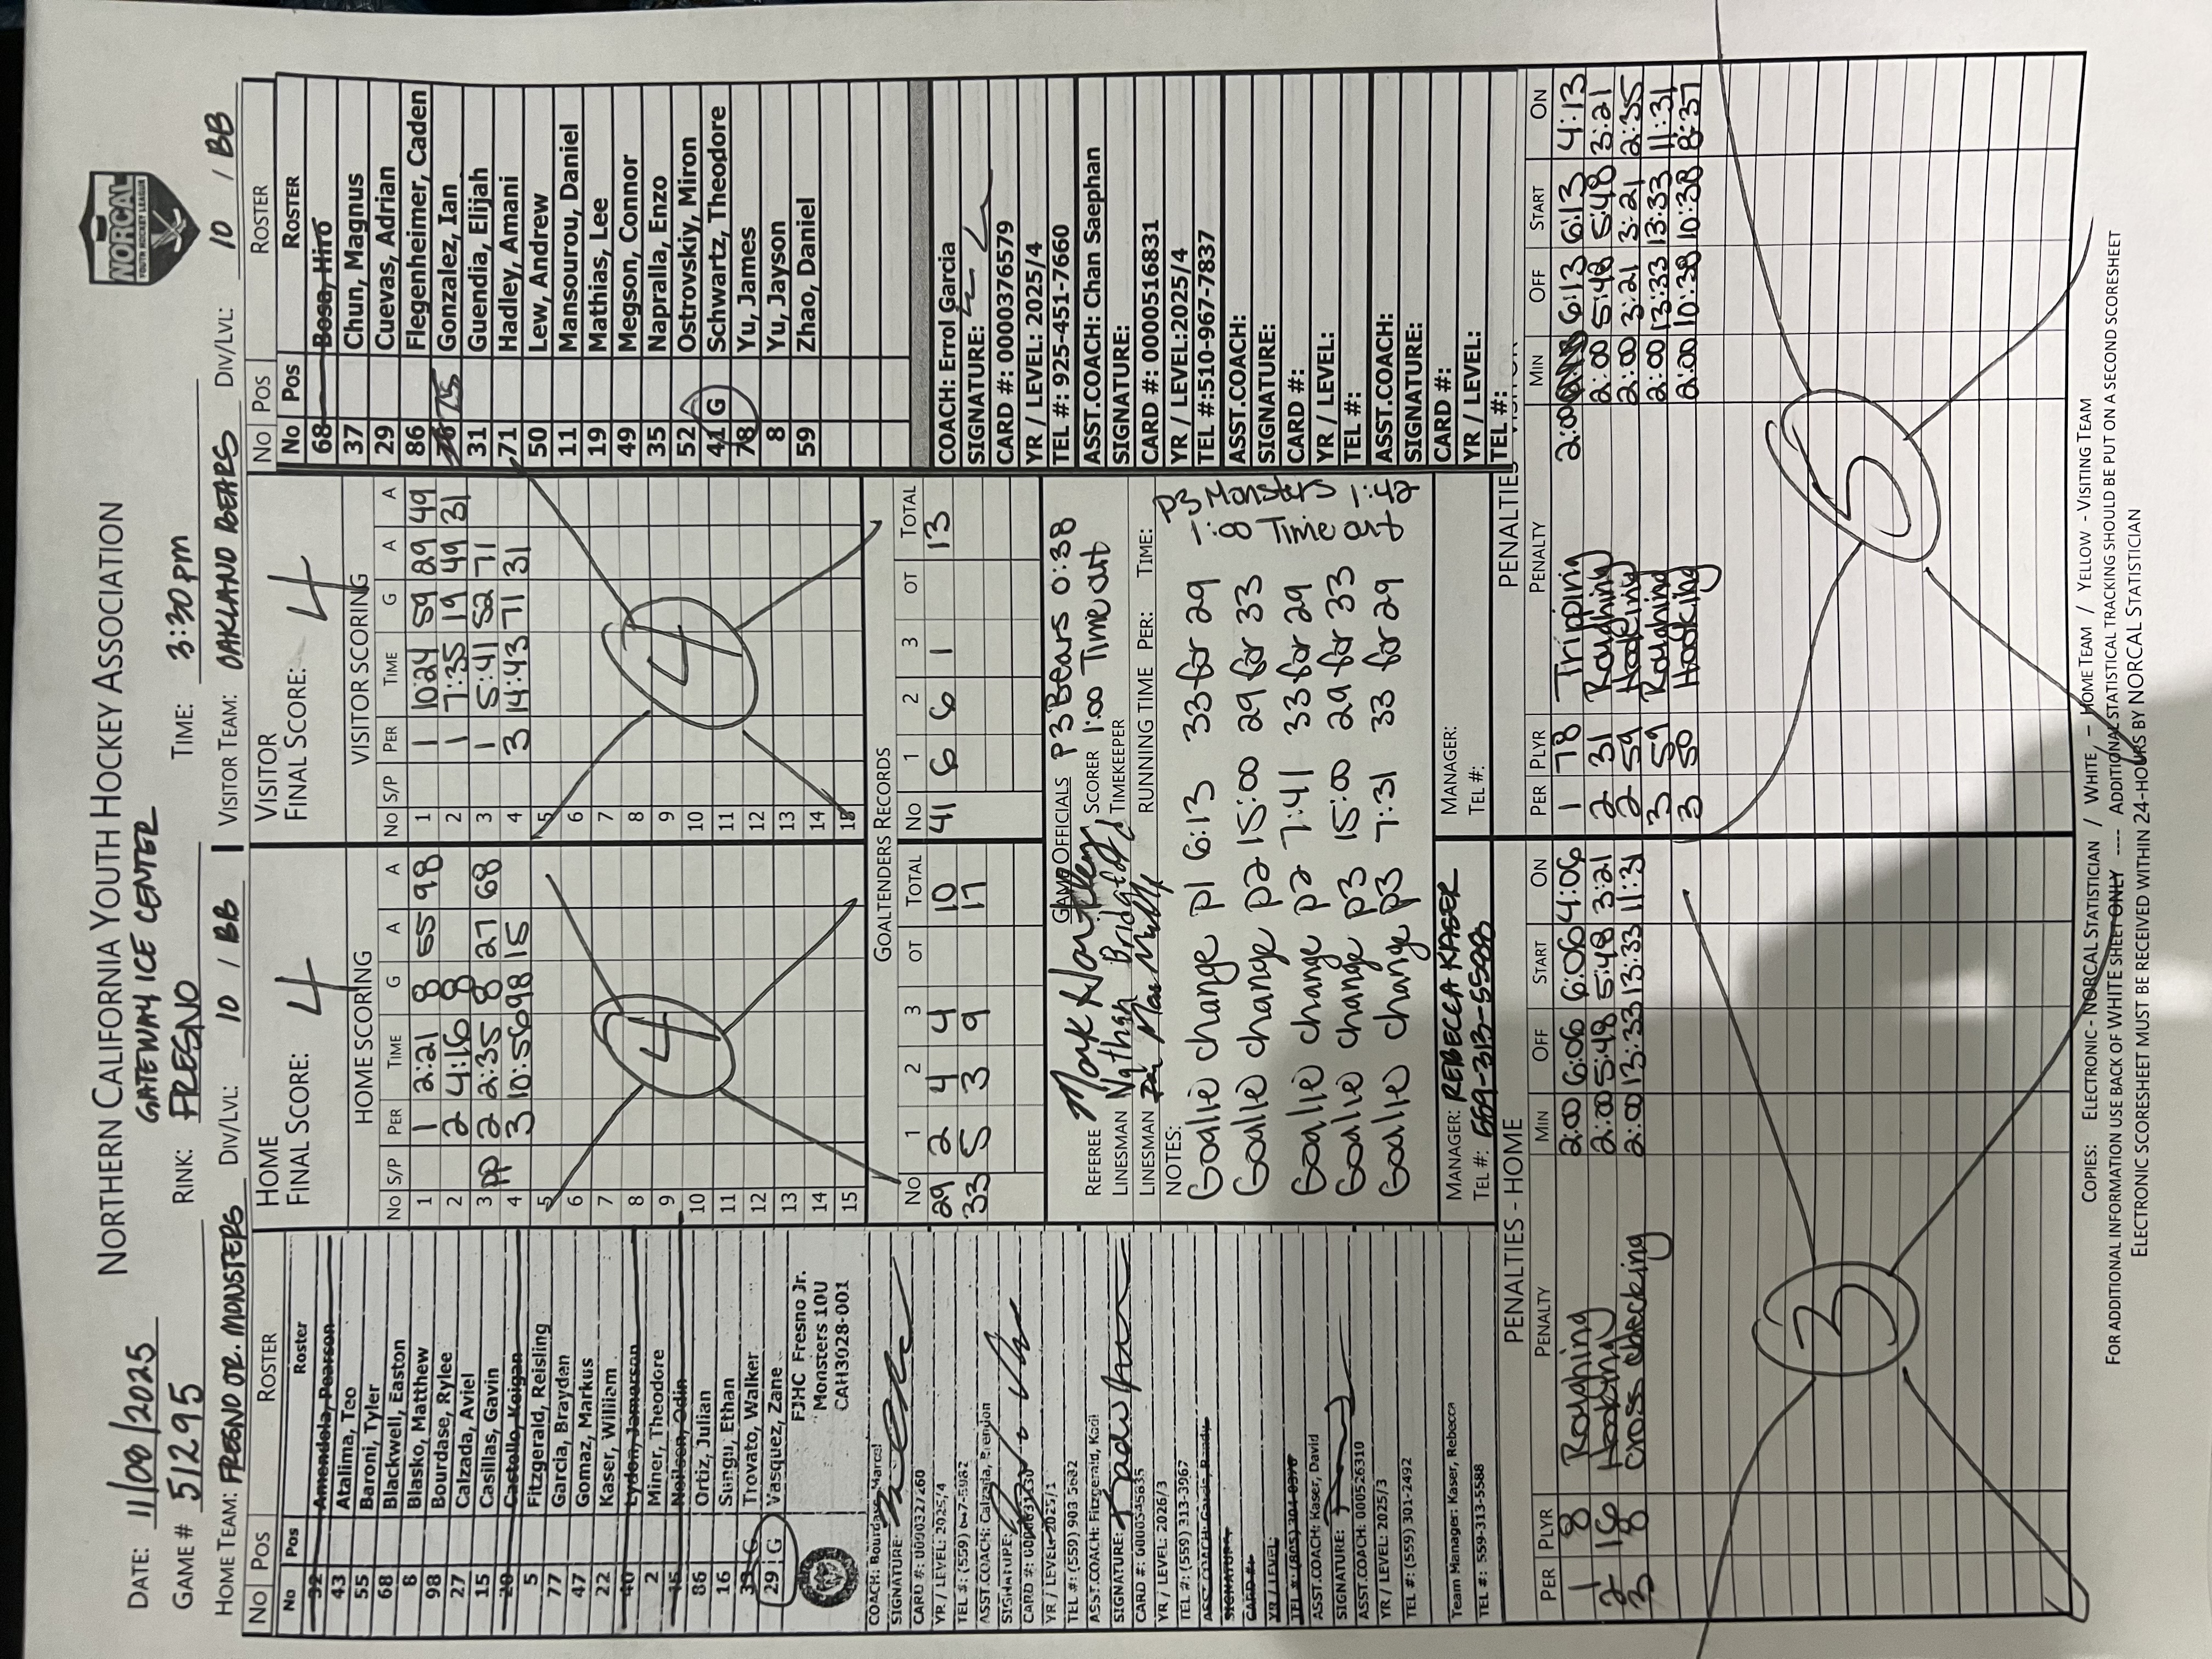 NORCAL
YOUTH HOCKEY LEAGUE
NORTHERN CALIFORNIA YOUTH HOCKEY ASSOCIATION
GATEWAY ICE CENTER
DATE: 11/09/2025
GAME # 51295 RINK: FRESNO TIME: 3:30pm
HOME TEAM: FRESNO JR. MONSTERS DIV/LVL: 10 / BB VISITOR TEAM: OAKLAND BEARS DIV/LVL: 10 / BB
NO POS ROSTER
No Pos Roster
32 Amendola, Pearson
43 Atalima, Teo
55 Baroni, Tyler
68 Blackwell, Easton
8 Blasko, Matthew
98 Bourdase, Rylee
27 Calzada, Aviel
15 Casillas, Gavin
20 Castollo, Keigan
5 Fitzgerald, Reisling
77 Garcia, Brayden
47 Gomaz, Markus
22 Kaser, William
40 Lydon, Jamerson
2 Miner, Theodore
15 Neilsen, Odin
86 Ortiz, Julian
16 Sungu, Ethan
33 G Trovato, Walker
29 G Vasquez, Zane
FJHC Fresno Jr.
Monsters 10U
CAH3028-001
COACH: Bourdase, Marcel
SIGNATURE:
CARD #: 0000327260
YR / LEVEL: 2025/4
TEL #: (559)
ASST.COACH: Calzada, Brendon
SIGNATURE:
CARD #:
YR / LEVEL: 2025/1
TEL #: (559) 903 5682
ASST.COACH: Fitzgerald, Kadi
SIGNATURE:
CARD #: 0000545835
YR / LEVEL: 2026/3
TEL #: (559) 313-3967
ASST COACH:
SIGNATURE:
CARD #:
YR / LEVEL:
TEL #: (805)
ASST.COACH: Kaser, David
SIGNATURE:
ASST.COACH: 0000526310
YR / LEVEL: 2025/3
TEL #: (559) 301-2492
Team Manager: Kaser, Rebecca
TEL #: 559-313-5588
HOME
FINAL SCORE: 4
HOME SCORING
NO S/P PER TIME G A A
1 1 2:21 8 55 98
2 2 4:16 8
3 PP 2 2:35 8 27 68
4 3 10:56 98 15
5
6
7
8
9
10
11
12
13
14
15
4
VISITOR
FINAL SCORE: 4
VISITOR SCORING
NO S/P PER TIME G A A
1 1 10:24 59 29 49
2 1 7:35 19 49 31
3 1 5:41 52 71
4 3 14:43 71 31
5
6
7
8
9
10
11
12
13
14
15
4
GOALTENDERS RECORDS
NO 1 2 3 OT TOTAL NO 1 2 3 OT TOTAL
29 2 4 4 10 41 6 6 1 13
33 5 3 9 17
GAME OFFICIALS
REFEREE Mark
LINESMAN Nathan
LINESMAN
SCORER
TIMEKEEPER
P3 Bears 0:38
1:00 Time out
NOTES: RUNNING TIME PER: TIME:
Goalie change P1 6:13 33 for 29
Goalie change P2 15:00 29 for 33
Goalie change P2 7:41 33 for 29
Goalie change P3 15:00 29 for 33
Goalie change P3 7:31 33 for 29
P3 Monsters
Time out
1:42
MANAGER: REBECCA KASER
TEL #: 559-313-5588
MANAGER:
TEL #:
NO POS ROSTER
No Pos ROSTER
68 Bosa, Hiro
37 Chun, Magnus
29 Cuevas, Adrian
86 Flegenheimer, Caden
75 Gonzalez, Ian
31 Guendia, Elijah
71 Hadley, Amani
50 Lew, Andrew
11 Mansourou, Daniel
19 Mathias, Lee
49 Megson, Connor
35 Napralla, Enzo
52 Ostrovskiy, Miron
41 G Schwartz, Theodore
78 Yu, James
8 Yu, Jayson
59 Zhao, Daniel
COACH: Errol Garcia
SIGNATURE:
CARD #: 0000376579
YR / LEVEL: 2025/4
TEL #: 925-451-7660
ASST.COACH: Chan Saephan
SIGNATURE:
CARD #: 0000516831
YR / LEVEL:2025/4
TEL #:510-967-7837
ASST.COACH:
SIGNATURE:
CARD #:
YR / LEVEL:
TEL #:
ASST.COACH:
SIGNATURE:
CARD #:
YR / LEVEL:
TEL #:
PENALTIES - HOME
PER PLYR PENALTY MIN OFF START ON
1 8 Roughing 2:00 6:06 6:06 4:06
2 16 Hooking 2:00 5:48 5:48 3:21
3 8 Cross checking 2:00 13:33 13:33 11:31
3
PENALTIES
PER PLYR PENALTY MIN OFF START ON
1 78 Tripping 2:00 6:13 6:13 4:13
2 31 Roughing 2:00 5:48 5:48 3:21
2 59 Hooking 2:00 3:21 3:21 2:35
3 59 Roughing 2:00 13:33 13:33 11:31
3 50 Hooking 2:00 10:38 10:38 8:37
5
COPIES: ELECTRONIC - NORCAL STATISTICIAN / WHITE – HOME TEAM / YELLOW - VISITING TEAM
FOR ADDITIONAL INFORMATION USE BACK OF WHITE SHEET ONLY ---- ADDITIONAL STATISTICAL TRACKING SHOULD BE PUT ON A SECOND SCORESHEET
ELECTRONIC SCORESHEET MUST BE RECEIVED WITHIN 24-HOURS BY NORCAL STATISTICIAN